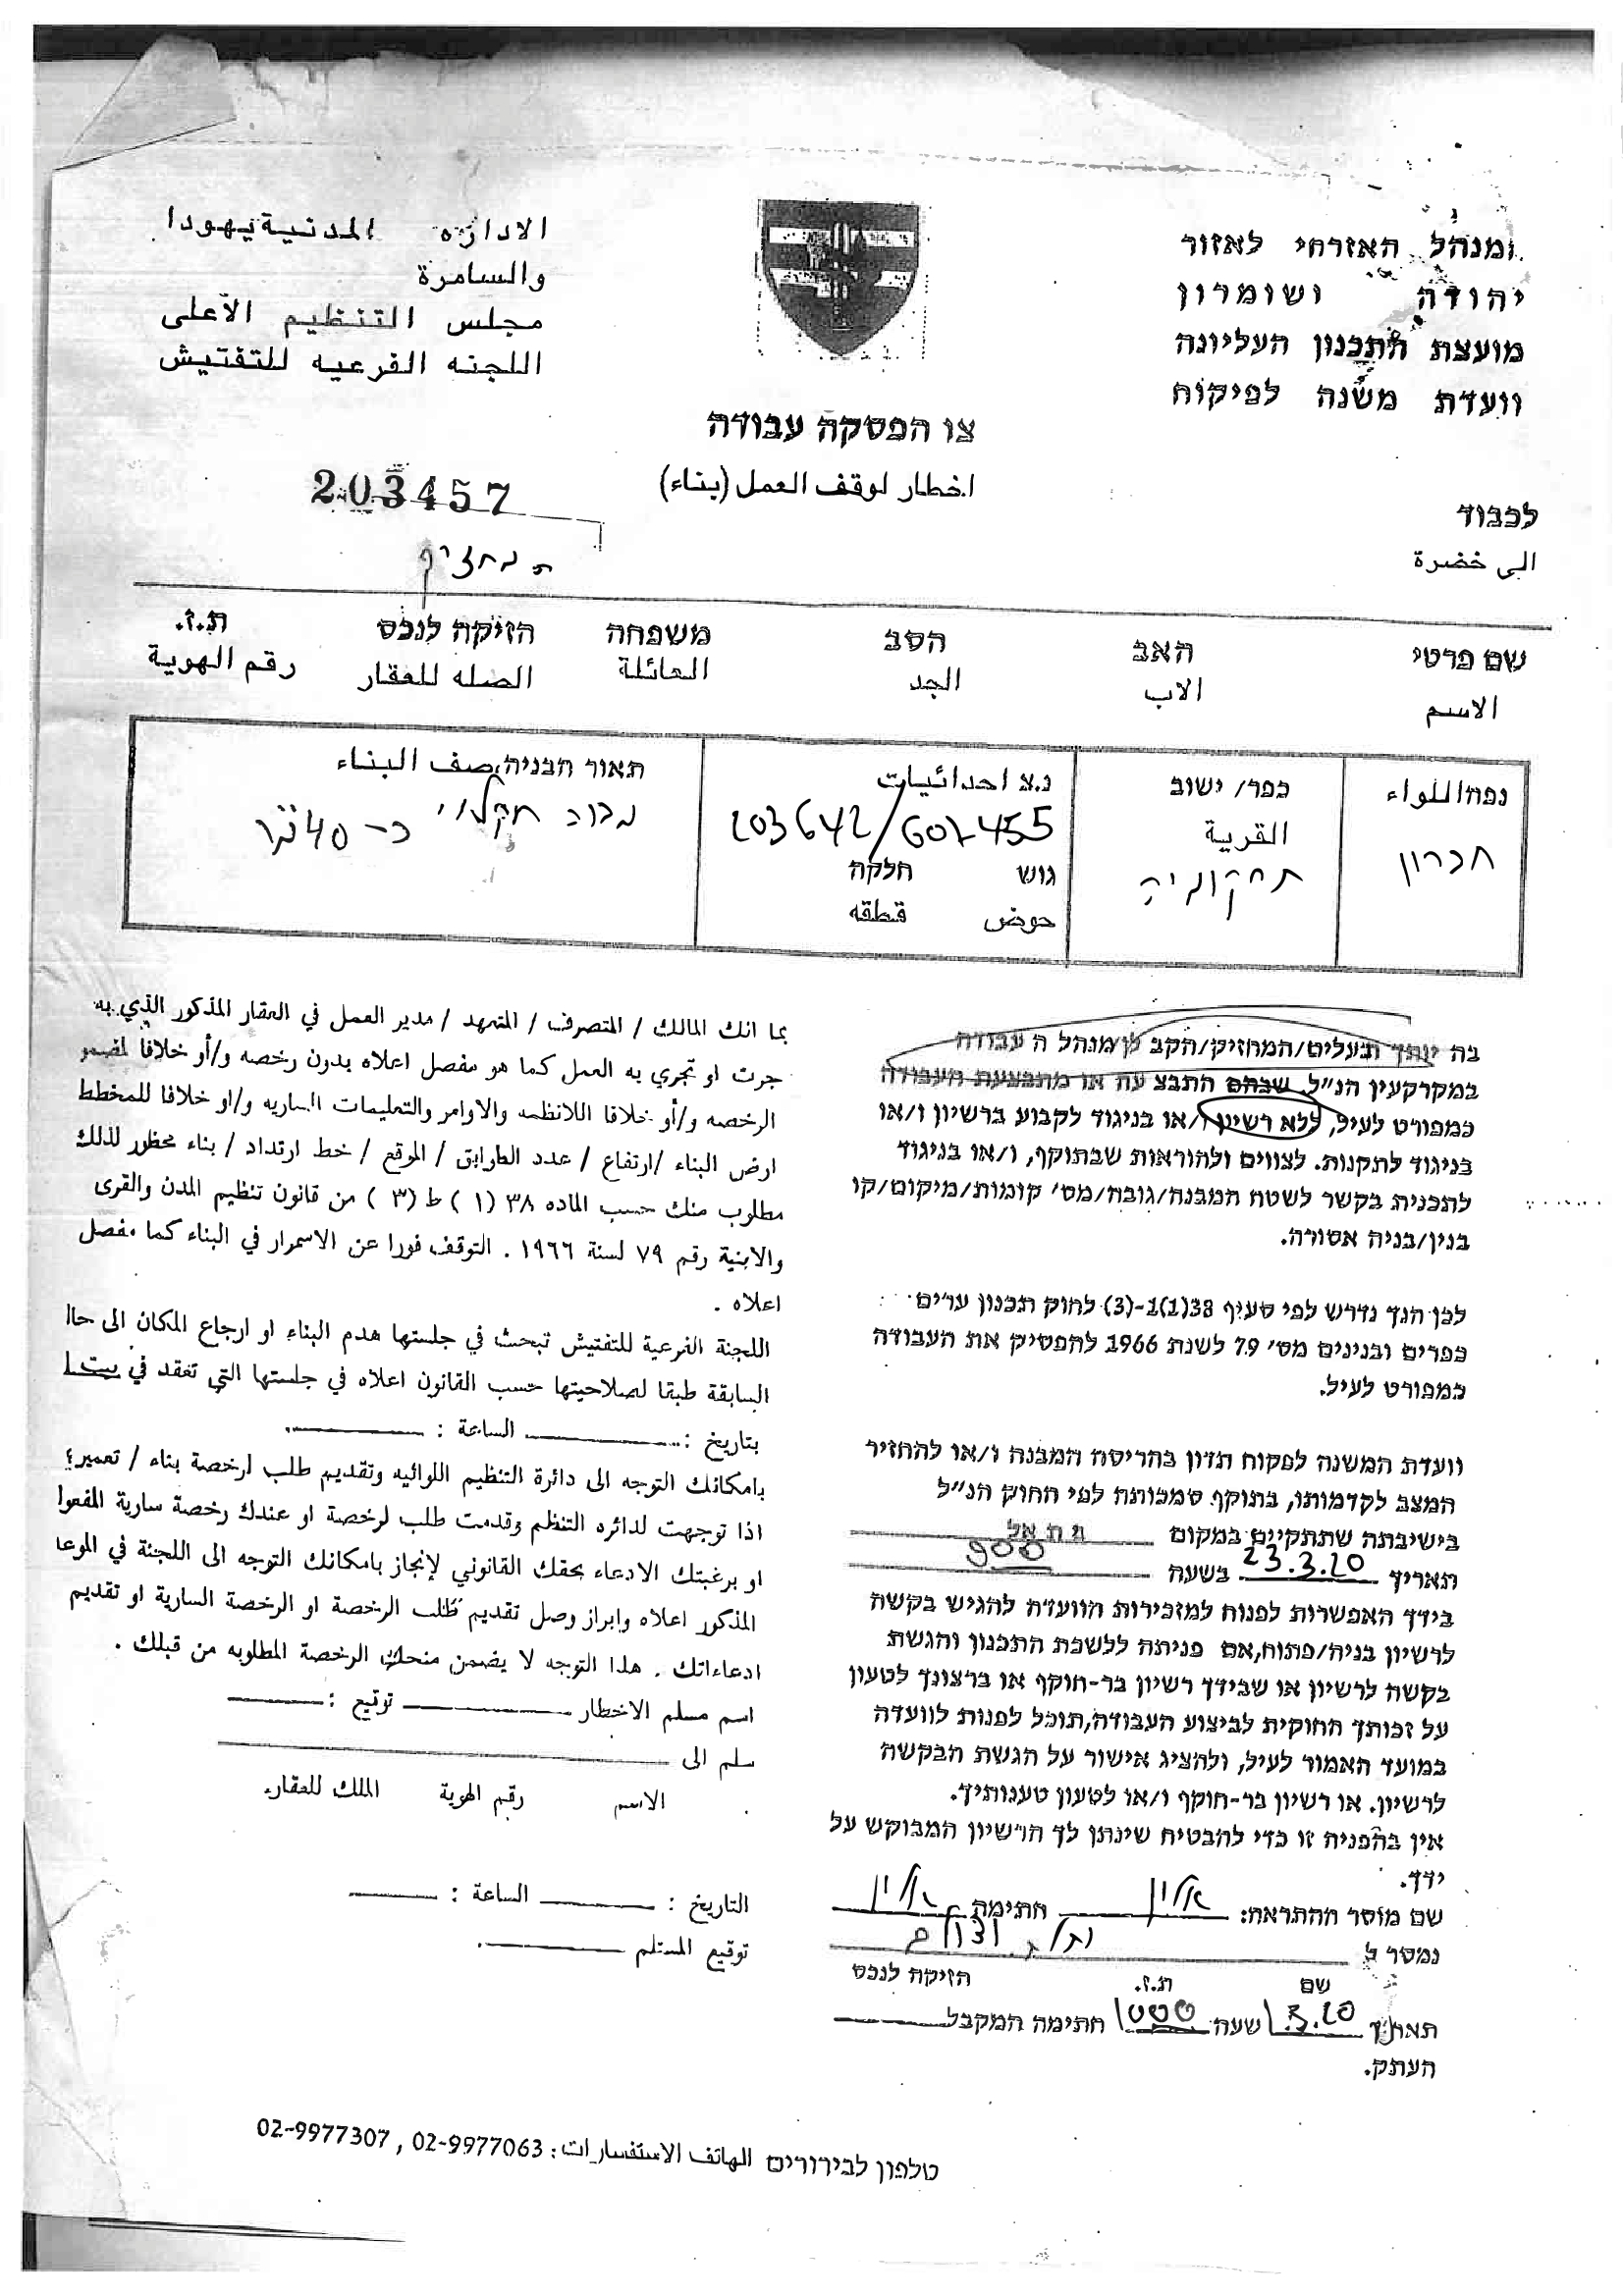 ומנהל האזרחי לאזור
יהודה ושומרון
מועצת התכנון העליונה
וועדת משנה לפיקוח
الادارة المدنية يهودا
والسامرة
مجلس التنظيم الأعلى
اللجنه الفرعيه للتفتيش
צו הפסקה עבודה
اخطار لوقف العمل (بناء)
203457
לכבוד
الى خضرة
שם פרטי האב הסב משפחה הזיקה לנכס ת.ז.
الاسم الاب الجد العائلة الصله للعقار رقم الهوية
נפה/اللواء כפר/ ישוב נ.צ احداثيات תאור הבניה,صف البناء
חברון القرية תרקומיה 203642/607455 מבנה חקלאי כ-40
גוש חלקה
حوض قطقه
בה יותך הבעלים/המחזיק/הקב לן מנהל ה עבודה
במקרקעין הנ"ל, שבהם התבצעה או מתבצעת העבודה
כמפורט לעיל, ללא רשיון ו/או בניגוד לקבוע ברשיון ו/או
בניגוד לתקנות. לצווים ולהוראות שבתוקף, ו/או בניגוד
לתכנית בקשר לשטח המבנה/גובה/מס' קומות/מיקום/קו
בנין/בניה אסורה.
לכן הנך נדרש לפי סעיף 38(1)1-(3) לחוק תכנון ערים
כפרים ובנינים מס' 79 לשנת 1966 להפסיק את העבודה
כמפורט לעיל.
וועדת המשנה לפקוח תדון בהריסה המבנה ו/או להחזיר
המצב לקדמותו, בתוקף סמכותה לפי החוק הנ"ל
בישיבתה שתתקיים במקום בת אל
תאריך 23.3.20 בשעה 900
בידך האפשרות לפנות למזכירות הוועדה להגיש בקשה
לרשיון בניה/פתוח,אם פניתה ללשכת התכנון והגשת
בקשה לרשיון או שבידך רשיון בר-חוקף או ברצונך לטעון
על זכותך החוקית לביצוע העבודה,תוכל לפנות לוועדה
במועד האמור לעיל, ולהציג אישור על הגשת הבקשה
לרשיון. או רשיון בר-חוקף ו/או לטעון טענותיך.
אין בהפניה זו כדי להבטיח שינתן לך הרשיון המבוקש על
ידך.
שם מוסר ההתראה: חתימה
נמסר ל
שם ת.ז. הזיקה לנכס
תאריך 3.20 שעה 1000 חתימה המקבל
העתק.
بما انك المالك / المتصرف / المتعهد / مدير العمل في العقار المذكور الذي به
جرت او تجري به العمل كما هو مفصل اعلاه بدون رخصه و/أو خلافا لمضمو
الرخصه و/أو خلافا اللانظمه والاوامر والتعليمات الساريه و/او خلافا للمخطط
ارض البناء /ارتفاع / عدد الطوابق / الموقع / خط ارتداد / بناء محظور لذلك
مطلوب منك حسب الماده ٣٨ (١ ) ط (٣ ) من قانون تنظيم المدن والقرى
والابنية رقم ٧٩ لسنة ١٩٦٦ . التوقف فورا عن الاسمرار في البناء كما مفصل
اعلاه .
اللجنة الفرعية للتفتيش تبحث في جلستها هدم البناء او ارجاع المكان الى حاا
السابقة طبقا لصلاحيتها حسب القانون اعلاه في جلستها التي تعقد في بيت ا
بتاريخ : الساعة :
بامكانك التوجه الى دائرة التنظيم اللوائيه وتقديم طلب ارخصة بناء / تعمير؛
اذا توجهت لدائره التنظم وقدمت طلب لرخصة او عندك رخصة سارية المفعوا
او برغبتك الادعاء بحقك القانوني لإنجاز بامكانك التوجه الى اللجنة في الموعا
المذكور اعلاه وابراز وصل تقديم طلب الرخصة او الرخصة السارية او تقديم
ادعاءاتك . هذا التوجه لا يضمن منحك الرخصة المطلوبه من قبلك .
اسم مسلم الاخطار توقيع :
سلم الى
الاسم رقم الهوية الملك للعقار
التاريخ : الساعة :
توقيع المستلم
טלפון לבירורים الهاتف الاستفسارات: 02-9977063 , 02-9977307